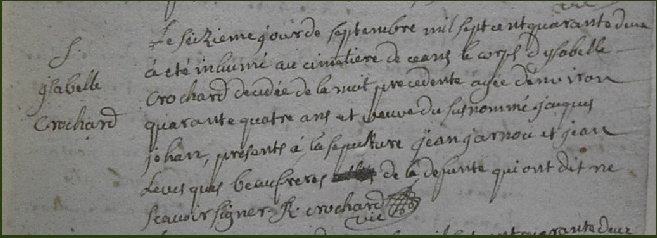 S.
ysabelle
Crochard
Le seizieme jour de septembre mil sept cent quarante deux
a été inhumé au cimetiere de ceans le corps d'ysabelle
Crochard decedée de la nuit precedente agée d'environ
quarante quatre ans et veuve du susnommé jaques
johan, présents à la sepulture jean jarnou et jean
beaufreres de la defunte qui ont dit ne
scavoir signer. R crochard
vic